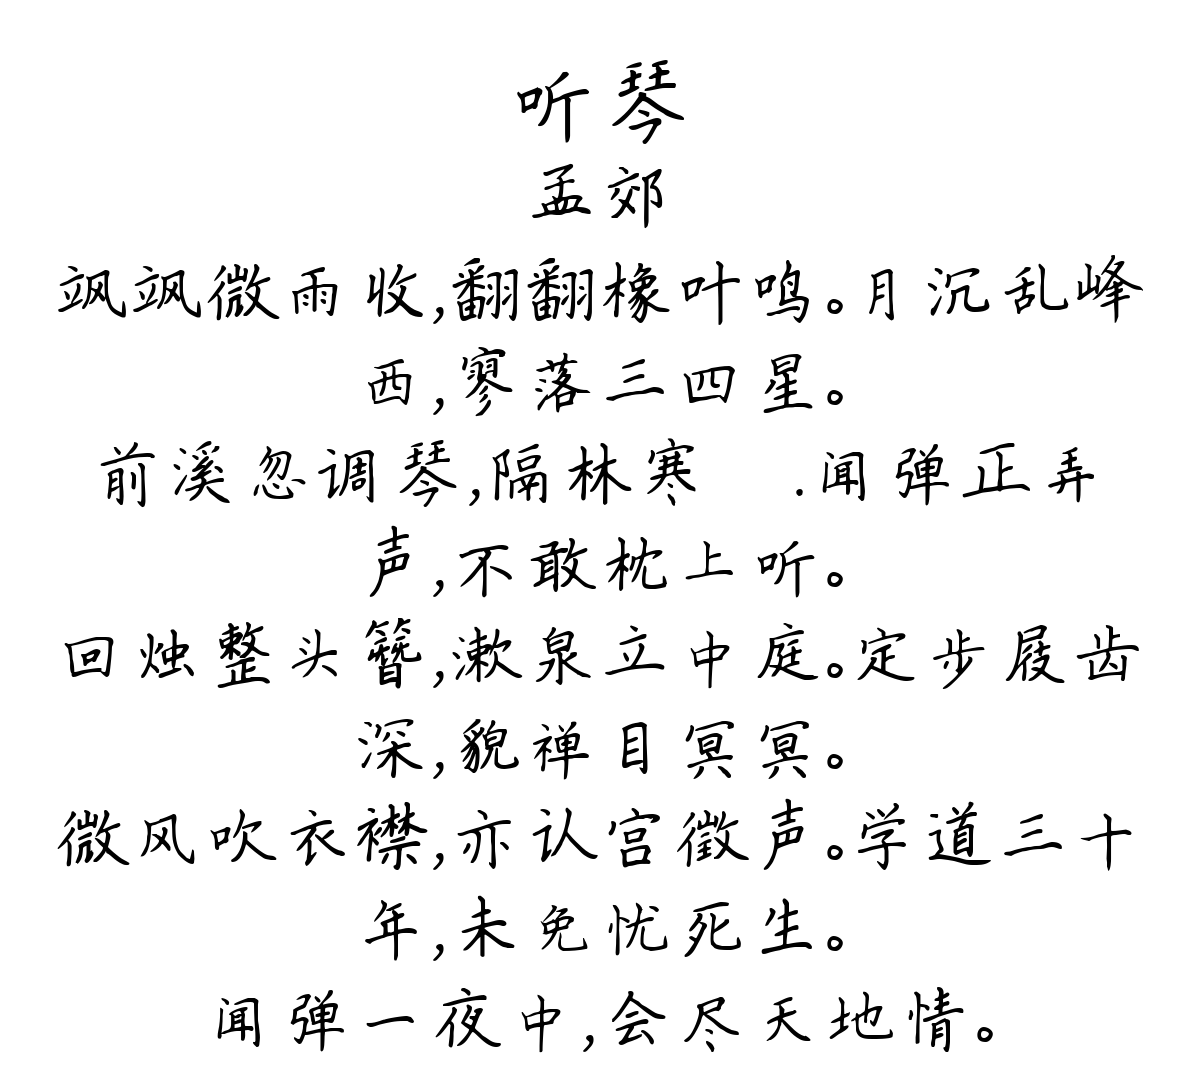 听琴
孟郊
飒飒微雨收,翻翻橡叶鸣。月沉乱峰
西,寥落三四星。
前溪忽调琴,隔林寒 .闻弹正弄
声,不敢枕上听。
回烛整头簪,漱泉立中庭。定步屐齿
深,貌禅目冥冥。
微风吹衣襟,亦认宫徵声。学道三十
年,未免忧死生。
闻弹一夜中,会尽天地情。